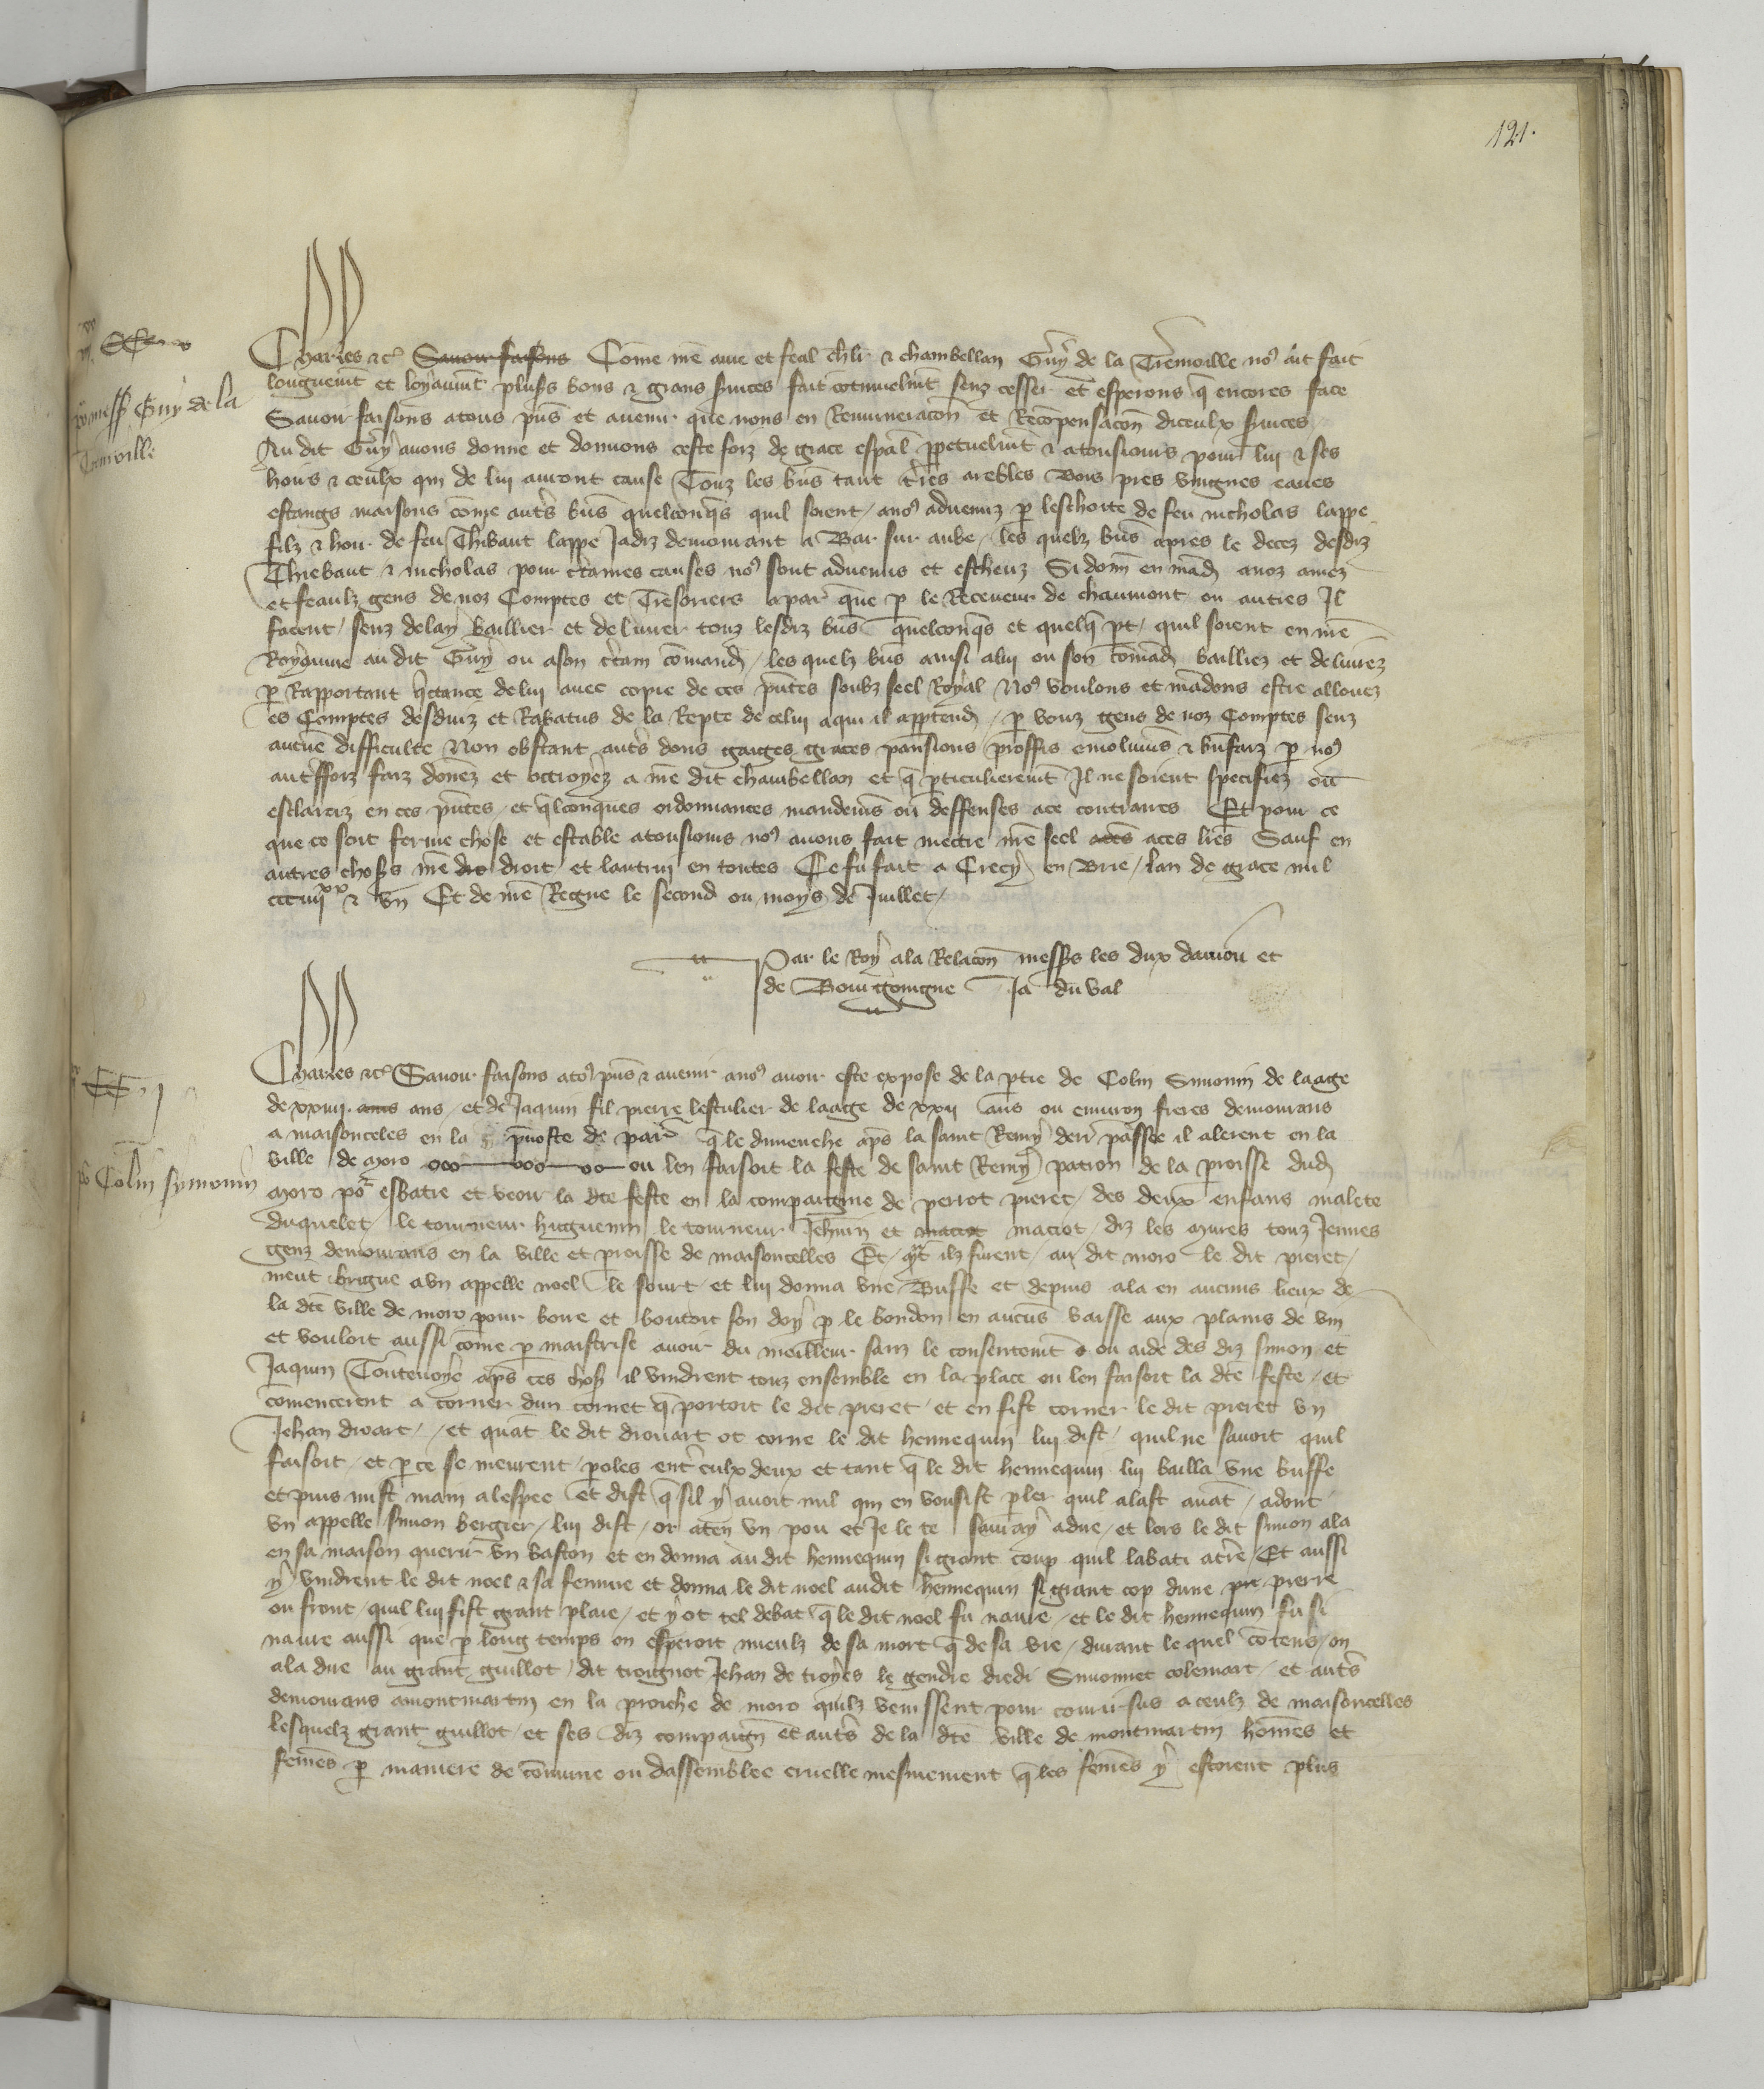 121.
pour mess Guy de la
Tremoille
Charles etc Sauoir faisons Come nre ame et feal chlr & chambellan Guy de la Tremoille nos ait fait
longuemt et loyaumt plusrs bons & grans suices fait continuelmt senz cesser et esperons q encores face
Sauoir faisons atous pns et auenir que nous en Remuneracon et Recompensacon diceulx suices
Au dit Guy auons donne et donnons ceste foiz de grace espal ppetuelmt & atousiours pour lui & ses
hoirs & ceulx qui de lui auront cause Touz les bns tant tres arables Bois pres vingnes eaues
estangs maisons come autrs bns quelconqs quil soient / anos aduenuz p leschoite de feu nicholas lappe
filz & hoir de feu Thibaut lappe Jadiz demourant a Bar sur aube / les quelz bns apres le decez desdiz
Thiebaut & nicholas pour ctaines causes nos sont aduenus et escheuz Si donn en mand anoz amez
et feaulz gens de noz Comptes et Tresoriers apar que p le Receueur de chaumont ou autres Il
facent / senz delay baillier et deliurer touz lesdiz bns quelconqs et quelq pt / quil soient en nre
Royaume au dit Guy ou ason ctain comand / les quelz bns ainsi alui ou son comad bailliez et deliurez
p Rapportant qctance de lui auec copie de ces pntes soubz seel Royal Nos voulons et madons estre allouez
es Comptes desduiz et Rabatus de la Repte de celui aqui il apptend / p vouz gens de noz Comptes senz
aucue difficulte Non obstant autrs dons gaiges graces pansions proffis emolumens & bnfaiz p nos
autrffoiz faiz donez et octroyez a nre dit chambellan et q pticulieremt Il ne soient specifiez ou
esclarciz en ces pntes / et qlconques ordonnances mandemens ou deffenses ace contraires Et pour ce
que ce soit ferme chose et estable atousiours nos auons fait mectre nre seel aces aces lres Sauf en
autres choses nre dro droit et lautrui en toutes Ce fu fait a Crecy en Brie / lan de grace mil
ccc iiijxx & vn Et de nre Regne le second ou moys de Juillet /
Par le Roy ala Relacon messrs les dux daniou et
de Bourgoingne Ja duval
po Colin symonin
Charles etc Sauoir faisons atos pns & auenir anos auoir este expose de la ptie de Colin Simonin de laage
de xxiiij ans ans / et de Jaquin fil pierre lestulier de laage de xxij ans ou enuiron freres demourans
a maisonceles en la preuoste de par q le dimenche aps la saint Remy derr passee il alerent en la
ville de moro ou len faisoit la feste de saint Remy patron de la proisse dud
moro por esbatre et veoir la dte feste en la compaignie de perrot pieret / des deux enfans malete
duquelet / le tourneur huguenin le tourneur Jehnin et maciot maciot / diz les mires touz Jeunes
genz demourans en la ville et proisse de maisoncelles Et / qt ilz furent / au dit moro le dit pieret /
meut brigue a vn appelle noel le sourt / et lui donna vne Buffe et depuis ala en aucuns lieux de
la dte ville de moro pour boire et boutoit son doy p le bondon en aucus vaisse aux plains de vin
et vouloit aussi come p maistrise auoir du meilleur sanz le consentemt o ou aide des diz simon et
Jaquin Toutevoye aps ces chos il vindrent touz ensemble en la place ou len faisoit la dte feste / et
comencerent a corner dun cornet q portoit le dit pieret / et en fist corner le dit pieret vn
Jehan droart / / et quat le dit drouart ot corne le dit hennequin lui dist / quil ne sauoit quil
faisoit / et p ce se meurent / poles entr eulx deux et tant q le dit hennequin lui bailla vne buffe
et puis mist main a lespee et dist q sil y auoit nul qui en vousist pler quil alast auat / adont
vn appelle simon bergier / lui dist / or aten vn pou et Je le te sauray adire / et lors le dit simon ala
en sa maison querir vn baston et en donna au dit hennequin si grant coup quil labati atre / Et aussi
y vindrent le dit noel & sa femme et donna le dit noel audit hennequin si grant cop dune pie pierre
ou front / quil lui fist grant plaie / et y ot tel debat q le dit noel fu naure / et le dit hennequin fu si
naure aussi que p long temps on esperoit mieulz de sa mort q de sa vie / durant le quel contens / on
ala dire au grant guillot / dit troignot Jehan de troyes le gendre diedi Simonnet colemart / et autrs
demourans amontmartin en la proiche de moro quilz venissent pour courir sus a ceulz de maisoncelles
lesquelz grant guillot / et ses diz compaign et autrs de la dte ville de montmartin homes et
femes p maniere de comune ou dassemblee cruelle mesmement q les femes y estoient plus